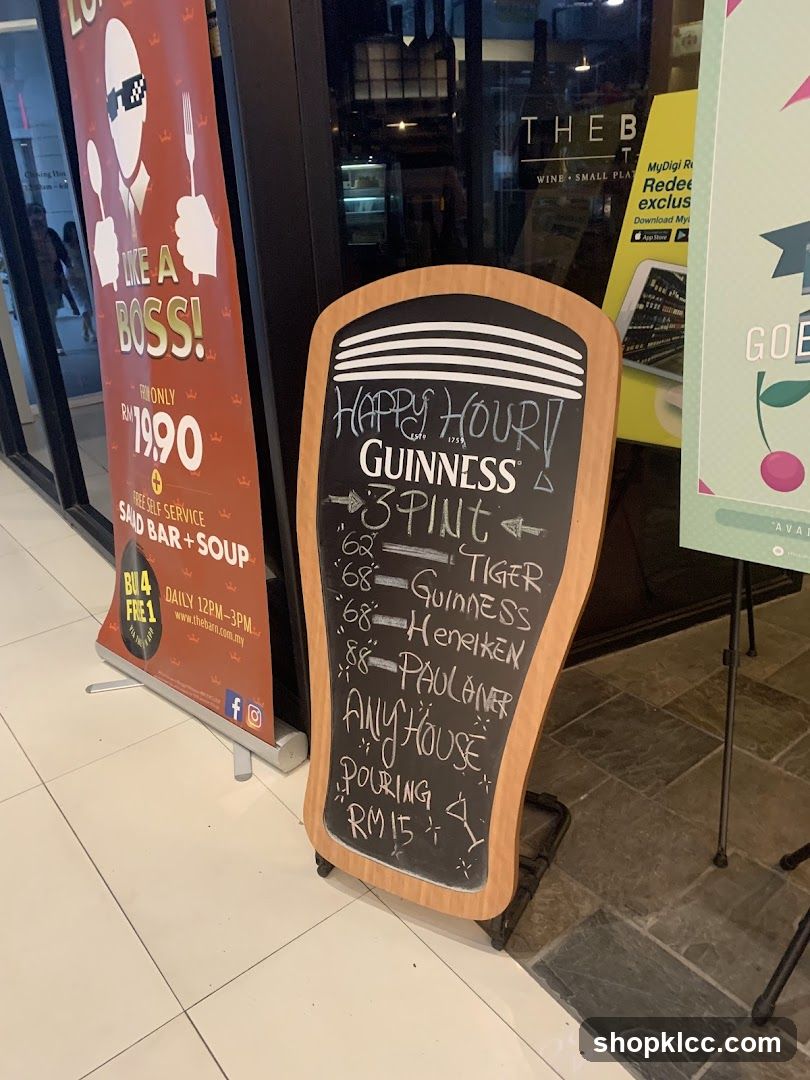 LIKE A
BOSS!
ONLY
RM19.90
+
FREE SELF SERVICE
SALAD BAR + SOUP
BUY 4
FREE 1
DAILY 12PM-3PM
www.thebarn.com.my
THE B
WINE • SMALL PLA
MyDigi Re
Redee
exclus
Download My
App Store
HAPPY HOUR!
ESTD 1759
GUINNESS
3 PINT
62 TIGER
68 GUINNESS
68 HENEIKEN
88 PAULANER
ANY HOUSE
POURING
RM 15
GOE
"AVAI
shopklcc.com